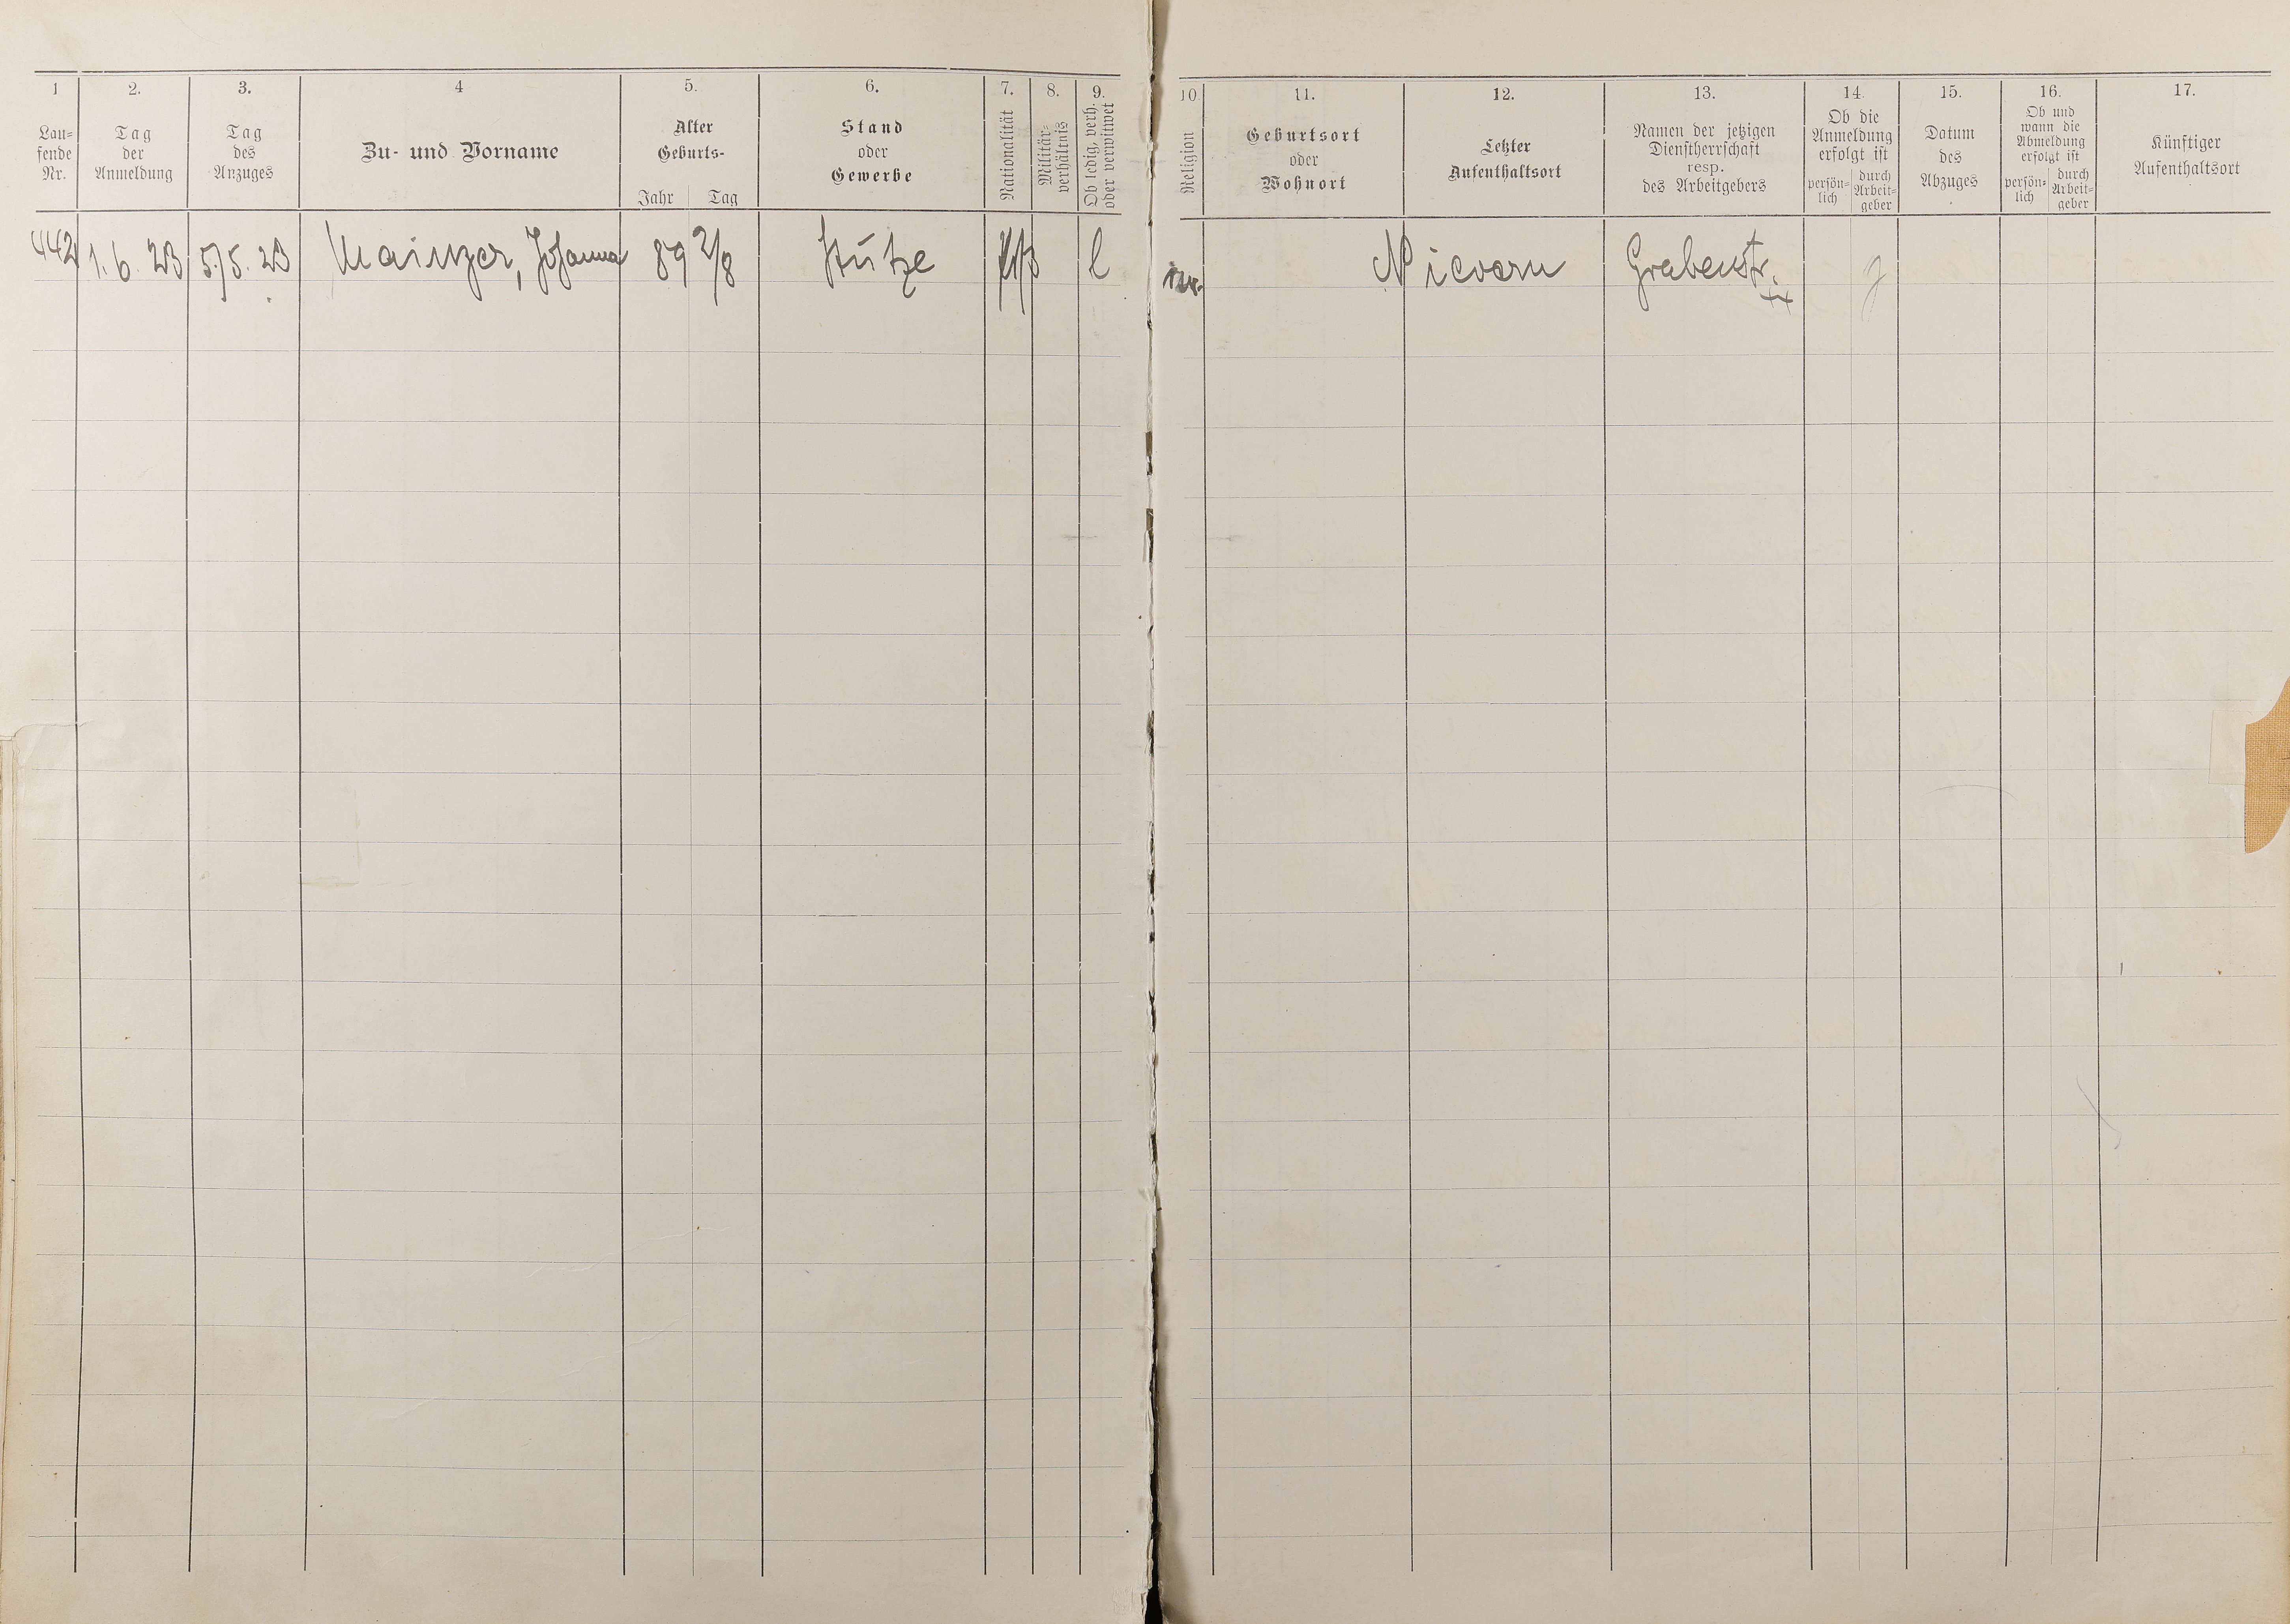 1 2. 3. 4 5. 6. 7. 8. 9. 10 11. 12. 13. 14. 15. 16. 17.
Lau-
fende
Nr.
Tag
der
Anmeldung
Tag
des
Anzuges
Zu- und Vorname
Alter
Geburts-
Jahr Tag
Stand
oder
Gewerbe
Nationalität
Militär-
verhältnis
Ob ledig, verh.
oder verwitwet
Religion
Geburtsort
oder
Wohnort
Letzter
Aufenthaltsort
Namen der jetzigen
Dienstherrschaft
resp.
des Arbeitgebers
Ob die
Anmeldung
erfolgt ist
persön-
lich
durch
Arbeit-
geber
Datum
des
Abzuges
Ob und
wann die
Abmeldung
erfolgt ist
persön-
lich
durch
Arbeit-
geber
Künftiger
Aufenthaltsort
442 1.6.23 5/5.23 Mainzer, Johanna 89 2/8 Stütze l isr. Nievern Grabenstr.